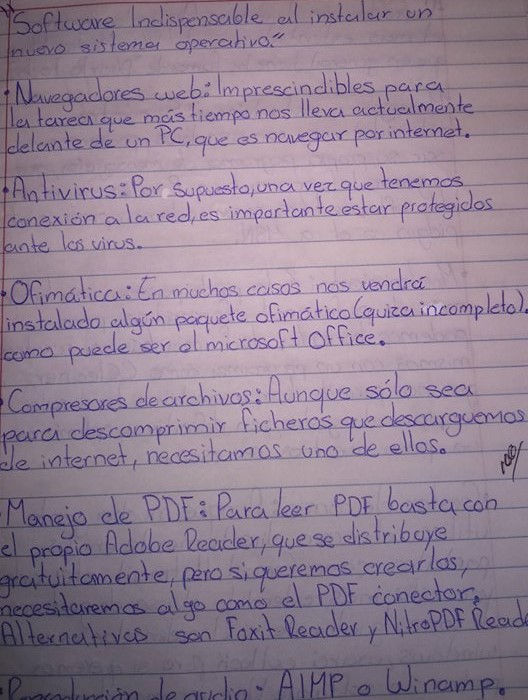 "Software Indispensable al instalar un
nuevo sistema operativo."
• Navegadores web: Imprescindibles para
la tarea que más tiempo nos lleva actualmente
delante de un PC, que es navegar por internet.
• Antivirus: Por supuesto, una vez que tenemos
conexión a la red, es importante estar protegidos
ante los virus.
• Ofimática: En muchos casos nos vendrá
instalado algún paquete ofimático (quiza incompleto).
como puede ser el microsoft Office.
• Compresores de archivos: Aunque sólo sea
para descomprimir ficheros que descarguemos
de internet, necesitamos uno de ellos.
• Manejo de PDF: Para leer PDF basta con
el propio Adobe Reader, que se distribuye
gratuitamente, pero si queremos crearlos,
necesitaremos algo como el PDF conector.
Alternativas son Foxit Reader y NitroPDF Reade
Reproducción de audio: AIMP o Winamp.